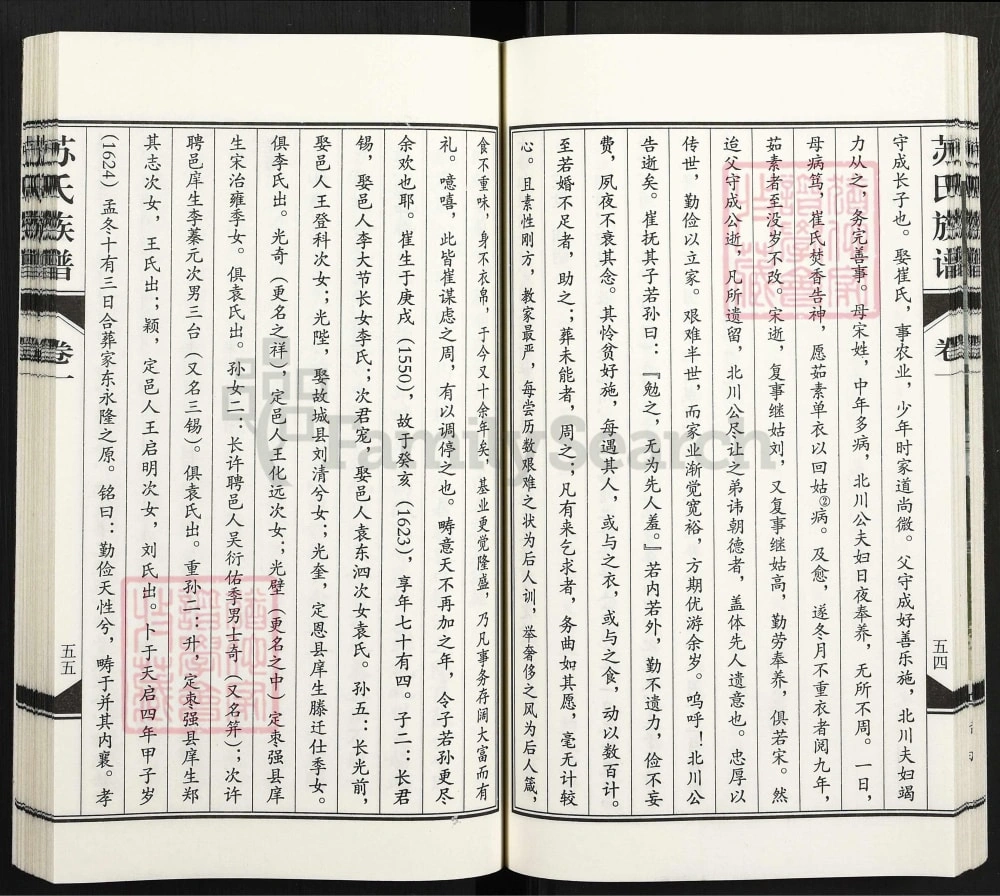 苏氏族谱
卷一
五四
守成长子也。娶崔氏，事农业，少年时家道尚微。父守成好善乐施，北川夫妇竭
力从之，务完善事。母宋姓，中年多病，北川公夫妇日夜奉养，无所不周。一日，
母病笃，崔氏焚香告神，愿茹素单衣以回姑②病。及愈，遂冬月不重衣者阅九年，
茹素者至没岁不改。宋逝，复事继姑刘，又复事继姑高，勤劳奉养，俱若宋。然
追父守成公逝，凡所遗留，北川公尽让之弟讳朝德者，盖体先人遗意也。忠厚以
传世，勤俭以立家。艰难半世，而家业渐觉宽裕，方期优游余岁。呜呼！北川公
告逝矣。崔抚其子若孙曰：『勉之，无为先人羞。』若内若外，勤不遗力，俭不妄
费，夙夜不衰其念。其怜贫好施，每遇其人，或与之衣，或与之食，动以数百计。
至若婚不足者，助之；葬未能者，周之；凡有来乞求者，务曲如其愿，毫无计较
心。且素性刚方，教家最严，每尝历数艰难之状为后人训，举奢侈之风为后人箴，
食不重味，身不衣帛，于今又十余年矣。基业更觉隆盛，乃凡事务存阔大富而有
礼。噫嘻，此皆崔谋虑之周，有以调停之也。畴意天不再加之年，令子若孙更尽
余欢也耶。崔生于庚戌（1550），故于癸亥（1623），享年七十有四。子二：长君
锡，娶邑人李大节长女李氏；次君宠，娶邑人袁东泗次女袁氏。孙五：长光前，
娶邑人王登科次女；光陛，娶故城县刘清兮女；光奎，定恩县庠生滕迁仕季女。
俱李氏出。光奇（更名之祥），定邑人王化远次女；光壁（更名之中）定枣强县庠
生宋治雍季女。俱袁氏出。孙女二：长许聘邑人吴衍佑季男士奇（又名笄）；次许
聘邑庠生李蓁元次男三台（又名三锡）。俱袁氏出。重孙二：升，定枣强县庠生郑
其志次女，王氏出；颖，定邑人王启明次女，刘氏出。卜于天启四年甲子岁
（1624）孟冬十有三日合葬家东永隆之原。铭曰：勤俭天性兮，畴于并其内襄。孝
苏氏族谱
卷一
五五
FamilySearch